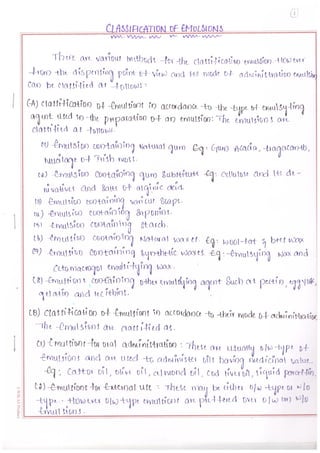 ①
CLASSIFICATION OF EMOLSIONS
There are various methods for the classification emulsion. However
from the dispensing point of view and its mode of administration emulsion
can be classified as follows:
(A) classification of Emulsions in accordance to the type of emulsifying
agent used in the preparation of an emulsion: The emulsions are
classified as follows.
(1) Emulsion containing Natural gum Eg: Gum Acacia, tragacanth,
Mucilage of Irish moss.
(2) Emulsion containing gum Substitutes Eg: Cellulose and its de-
rivatives and Salts of alginic acid.
(3) Emulsions containing various Soaps.
(4) Emulsions containing Saponins.
(5) Emulsions containing Starch.
(6) Emulsions containing Natural waxes Eg: wool-fat & bees wax
(7) Emulsions containing Synthetic waxes Eg - Emulsifying wax and
Cetomacrogol emulsifying wax.
(8) Emulsions containing other emulsifying agent Such as pectin, egg yolk,
gelatin and lecithin.
(B) Classification of Emulsions in accordance to their mode of administration
The Emulsions are classified as.
(1) Emulsions for oral administration: These are usually o/w-type of
Emulsions and are used to administer oils having medicinal value.
Eg: Castor oil, olive oil, almond oil, cod liver oil, liquid paraffin.
(2) Emulsions for External use: These may be either o/w type or w/o
type. However o/w type emulsions are preffered over w/o
Emulsions.